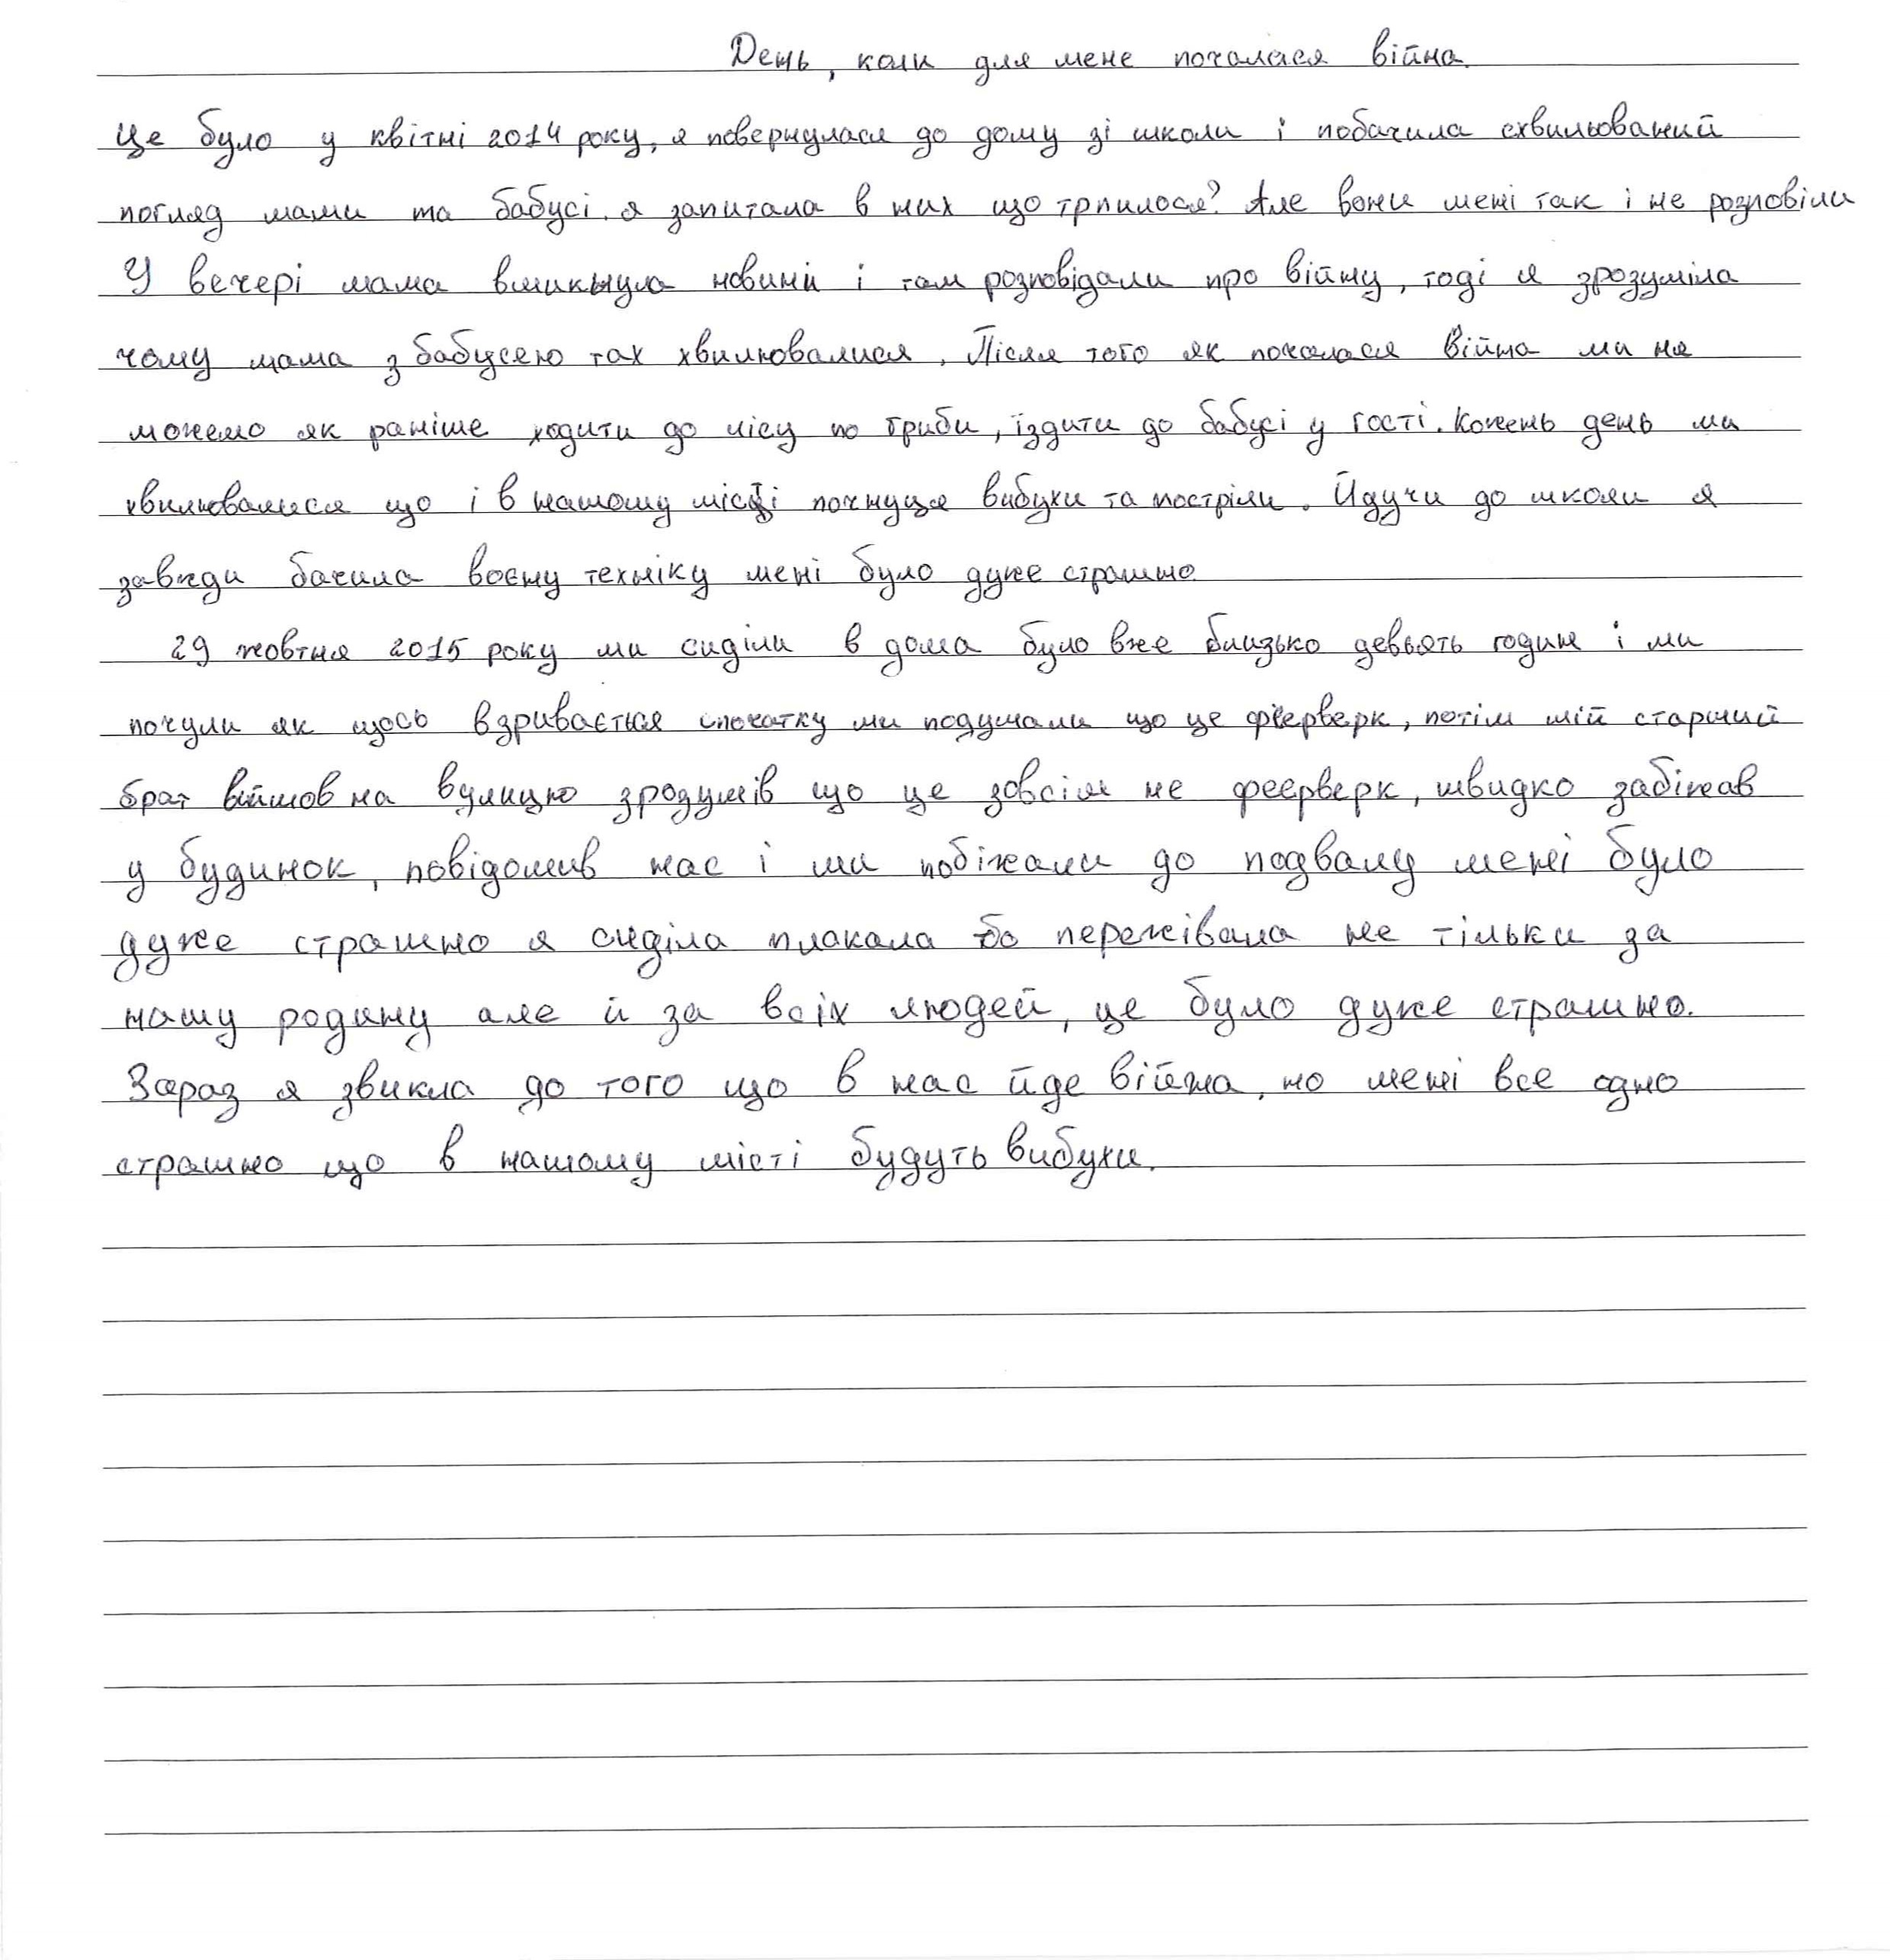 День, коли для мене почалася війна.
Це було у квітні 2014 року, я повернулася до дому зі школи і побачила схвильований
погляд мами та бабусі. я запитала в них що трпилося? Але вони мені так і не розповіли
У вечері мама вмикнула новини і там розповідали про війну, тоді я зрозуміла
чому мама з бабусею так хвилювалися. Після того як почалася війна ми не
можемо як раніше ходити до лісу по гриби, їздити до бабусі у гості. Кожень день ми
хвилювалися що і в нашому місці почнуця вибухи та постріли. Йдучи до школи я
завжди бачила воєну техніку мені було дуже страшно
29 жовтня 2015 року ми сиділи в дома було вже близько девьять годин і ми
почули як щось вздривається спочатку ми подумали що це феєрверк, потім мій старший
брат війшов на вулицю зрозумів що це зовсім не феєрверк, швидко забіжав
у будинок, повідомив нас і ми побіжали до подвалу мені було
дуже страшно я сиділа плакала бо переживала не тільки за
нашу родину але й за всіх людей, це було дуже страшно.
Зараз я звикла до того що в нас йде війна, но мені все одно
страшно що в нашому місті будуть вибухи.